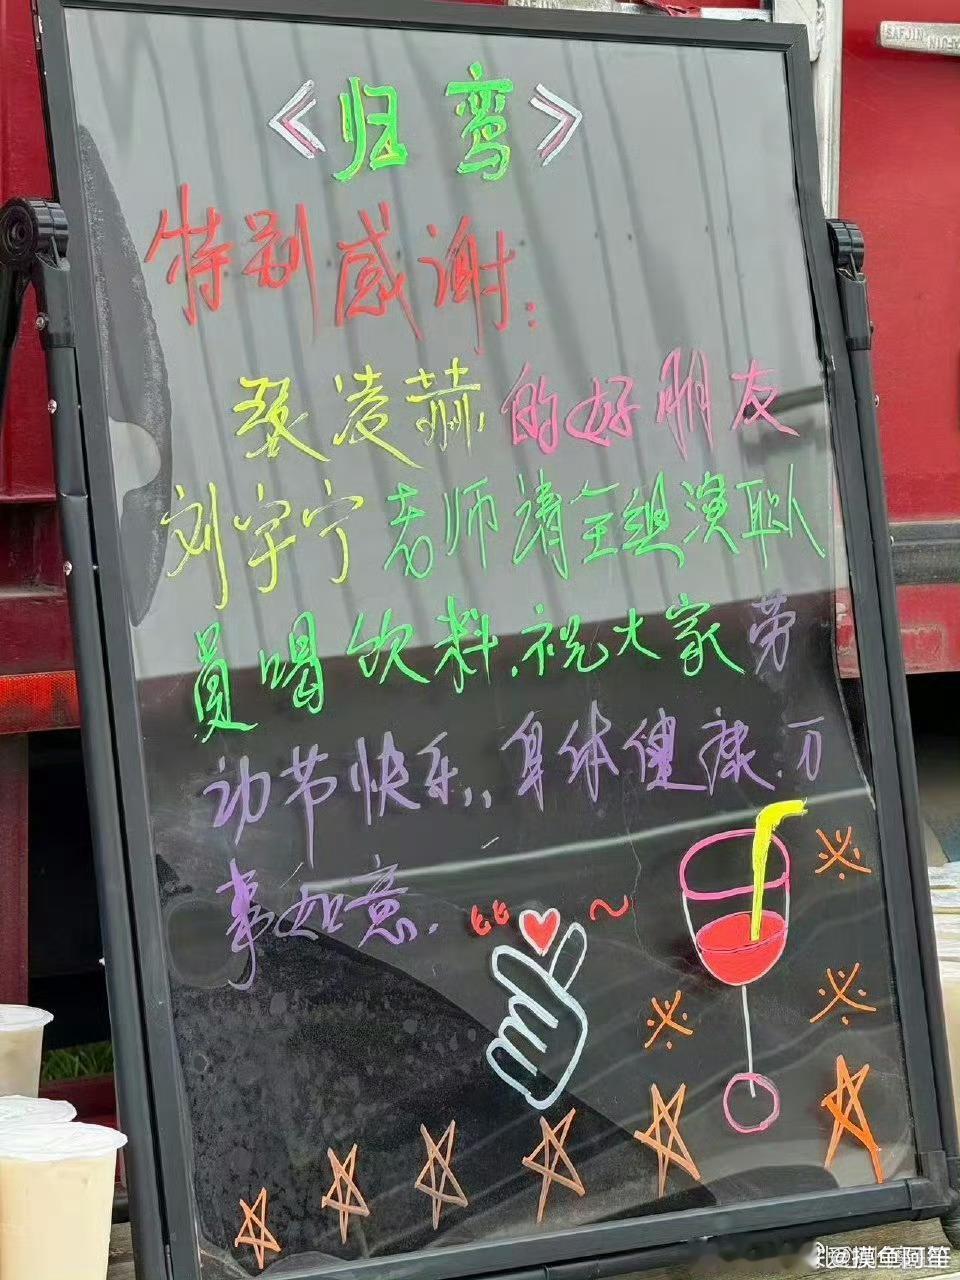 《归鸾》
特别感谢:
张凌赫的好朋友
刘宇宁老师请全组演职
员喝饮料,祝大家劳
动节快乐,,身体健康,万
事如意.
SAFJIN
@摸鱼阿笙